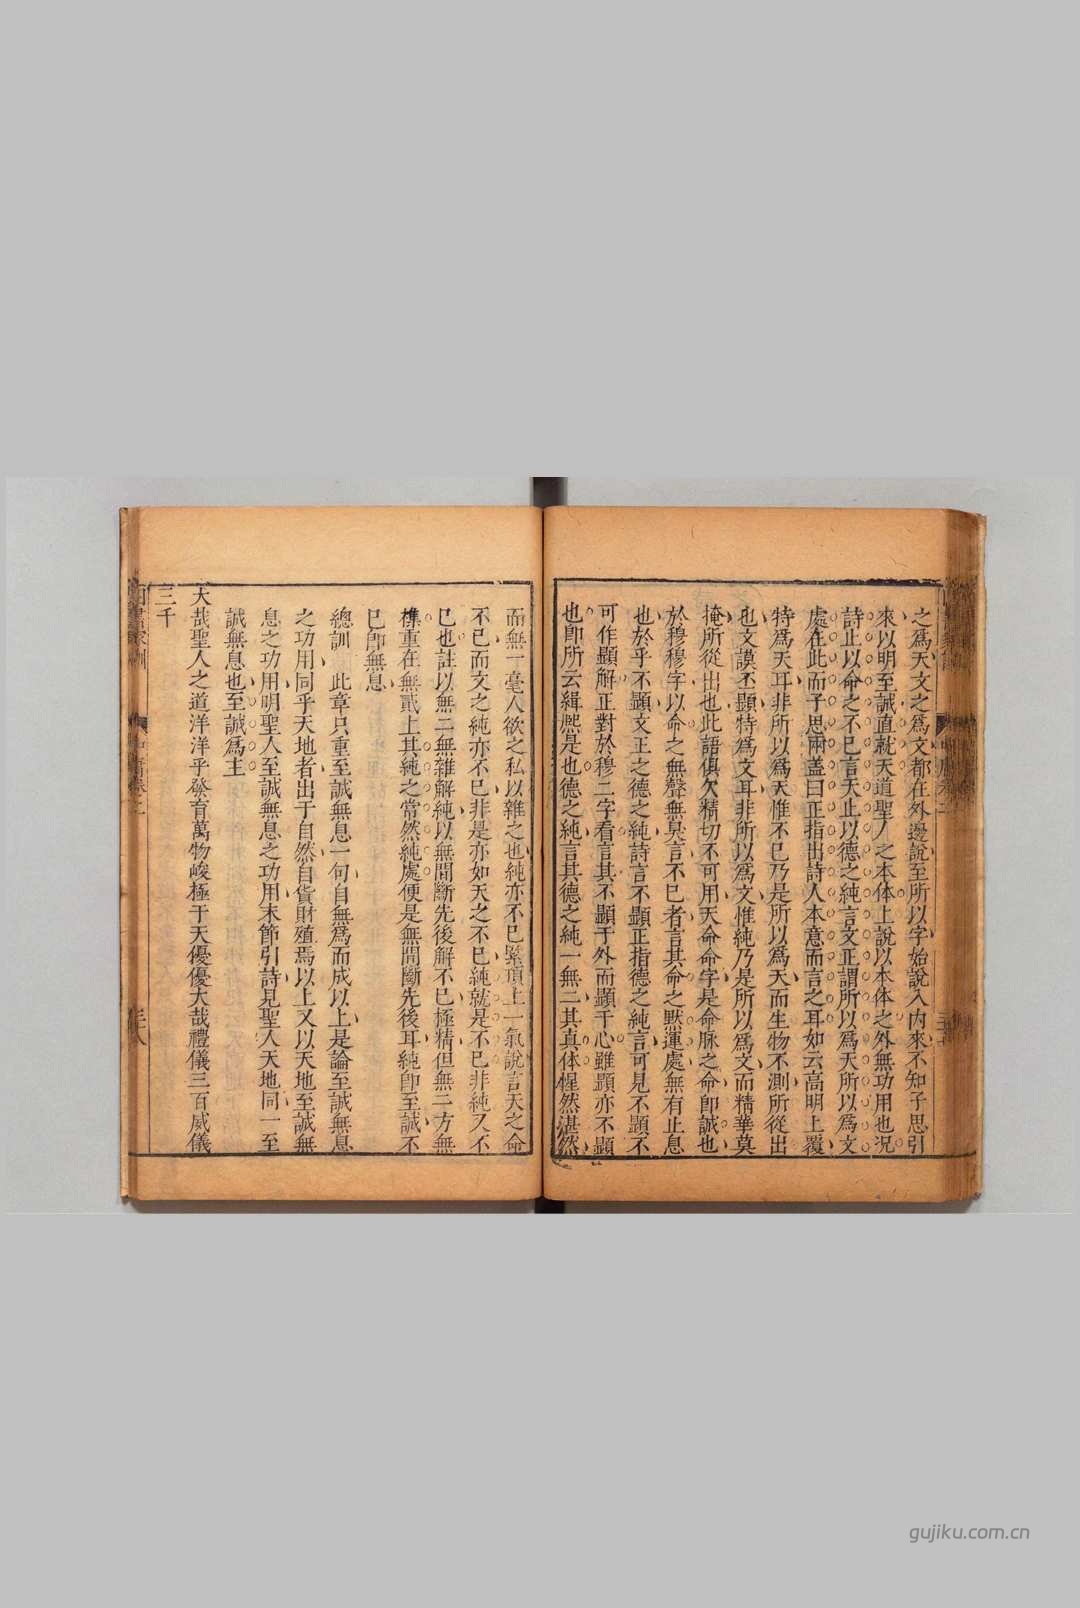 之爲天文之爲文都在外邊說至所以字始說入内來不知子思引
來以明至誠直就天道聖人之本体上說以本体之外無功用也况
詩止以命之不已言天止以德之純言文正謂所以爲天所以爲文
處在此而子思兩盖曰正指出詩人本意而言之耳如云高明上覆
特爲天耳非所以爲天惟不已乃是所以爲天而生物不測所從出
也文謨丕顯特爲文耳非所以爲文惟純乃是所以爲文而精華莫
掩所從出也此語俱欠精切不可用天命命字是命脉之命即誠也
於穆穆字以命之無聲無臭言不已者言其命之默運處無有止息
也於乎不顯文王之德之純詩言不顯正指德之純言可見不顯不
可作顯解正對於穆二字看言其不顯于外而顯于心雖顯亦不顯
也卽所云緝熈是也德之純言其德之純一無二其真体惺然湛然
而無一毫人欲之私以雜之也純亦不已緊頂上一氣說言天之命
不已而文之純亦不已非是亦如天之不已純就是不已非純又不
已也註以無二無雜解純以無間斷先後解不已極精但無二方無
雜重在無貳上其純之常然純處便是無間斷先後耳純卽至誠不
已卽無息
總訓 此章只重至誠無息一句自無爲而成以上是論至誠無息
之功用同乎天地者出于自然自貨財殖焉以上又以天地至誠無
息之功用明聖人至誠無息之功用末節引詩見聖人天地同一至
誠無息也至誠爲主
大哉聖人之道洋洋乎發育萬物峻極于天優優大哉禮儀三百威儀
三千
四書家訓 中庸卷二 三十八
gujiku.com.cn